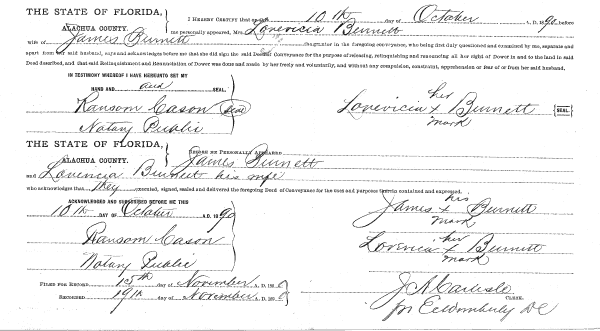 THE STATE OF FLORIDA,
ALACHUA COUNTY.
I HEREBY CERTIFY that on this 10th day of October A. D. 1890, before
me personally appeared, Mrs. Lovevicia Burnett
wife of James Burnett
the grantor in the foregoing conveyance, who being first duly questioned and examined by me, separate and
apart from her said husband, says and acknowledges before me that she did sign the said Deed of Conveyance for the purpose of releasing, relinquishing and renouncing all her right of Dower in and to the land in said
Deed described, and that said Relinquishment and Renunciation of Dower was done and made by her freely and voluntarily, and without any compulsion, constraint, apprehension or fear of or from her said husband.
IN TESTIMONY WHEREOF I HAVE HEREUNTO SET MY
HAND AND and SEAL.
Ransom Cason (Seal)
Notary Public
her
Lovevicia x Burnett SEAL
mark
THE STATE OF FLORIDA,
ALACHUA COUNTY.
BEFORE ME PERSONALLY APPEARED James Burnett
and Lovevicia Burnett his wife
who acknowledges that they executed, signed, sealed and delivered the foregoing Deed of Conveyance for the uses and purposes therein contained and expressed.
ACKNOWLEDGED AND SUBSCRIBED BEFORE ME THIS
10th DAY OF October A. D. 1890
Ransom Cason
Notary Public
his
James x Burnett
mark
her
Lovevicia x Burnett
mark
FILED FOR RECORD 15th day of November A. D. 1890
RECORDED 19th day of November A. D. 1890
J A Carlisle CLERK.
pr DC